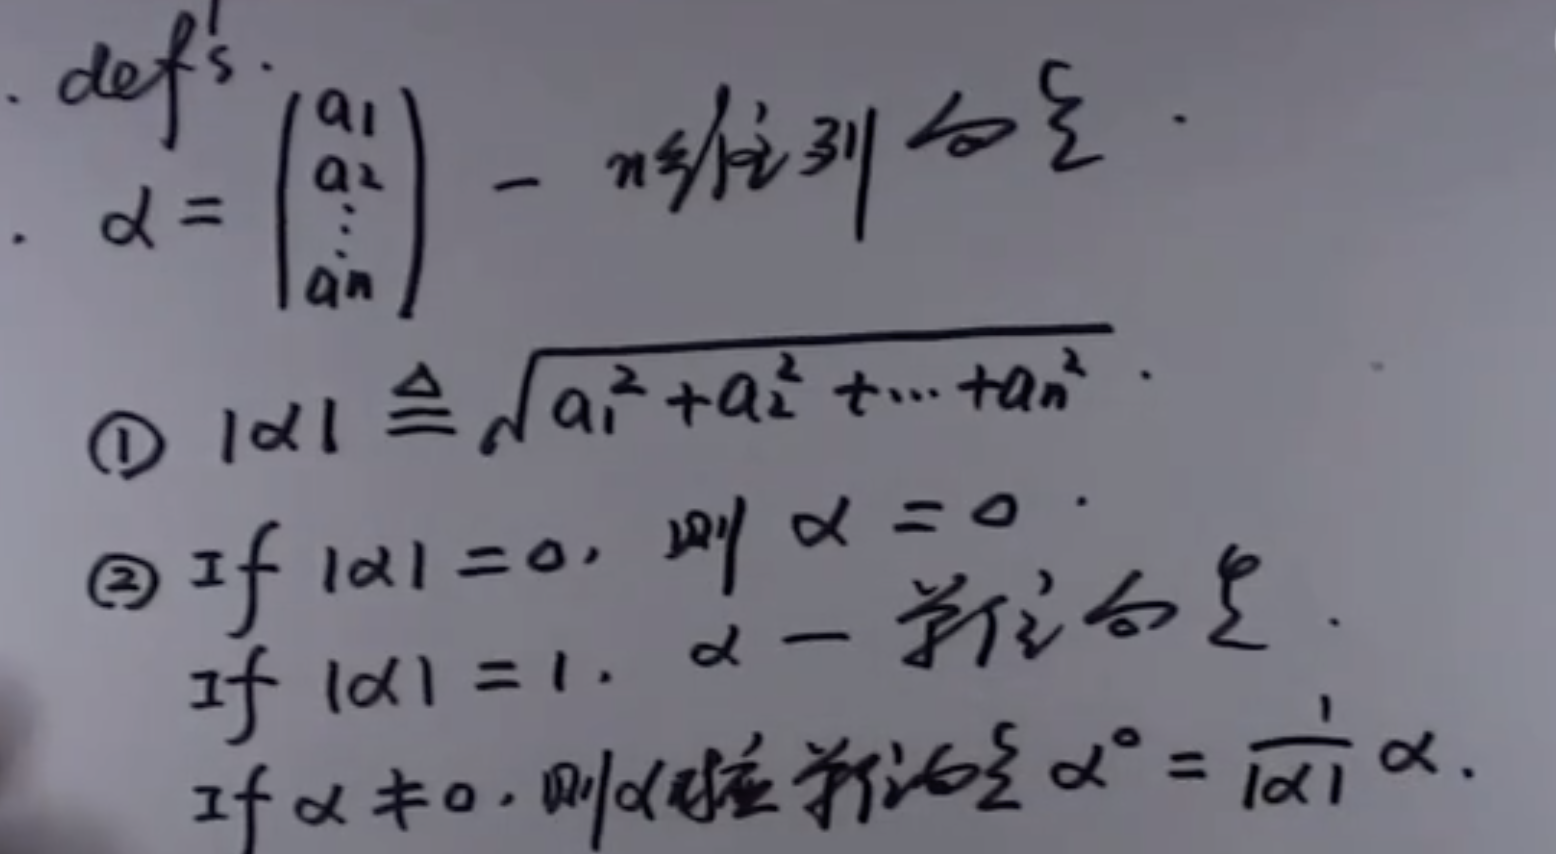 def's.
α = (a₁ a₂ ⋮ aₙ) — n维列向量.
① |α| ≜ √(a₁² + a₂² + … + aₙ²).
② If |α| = 0, 则 α = 0.
If |α| = 1. α — 单位向量.
If α ≠ 0. 则α对应单位向量 α° = 1/|α| α.